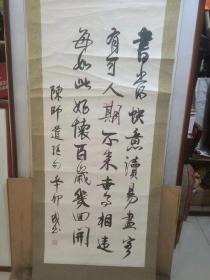 書當快意讀易盡客
有可人期不來世事相違
每如此好懷百歲幾回開
陳師道絕句辛卯